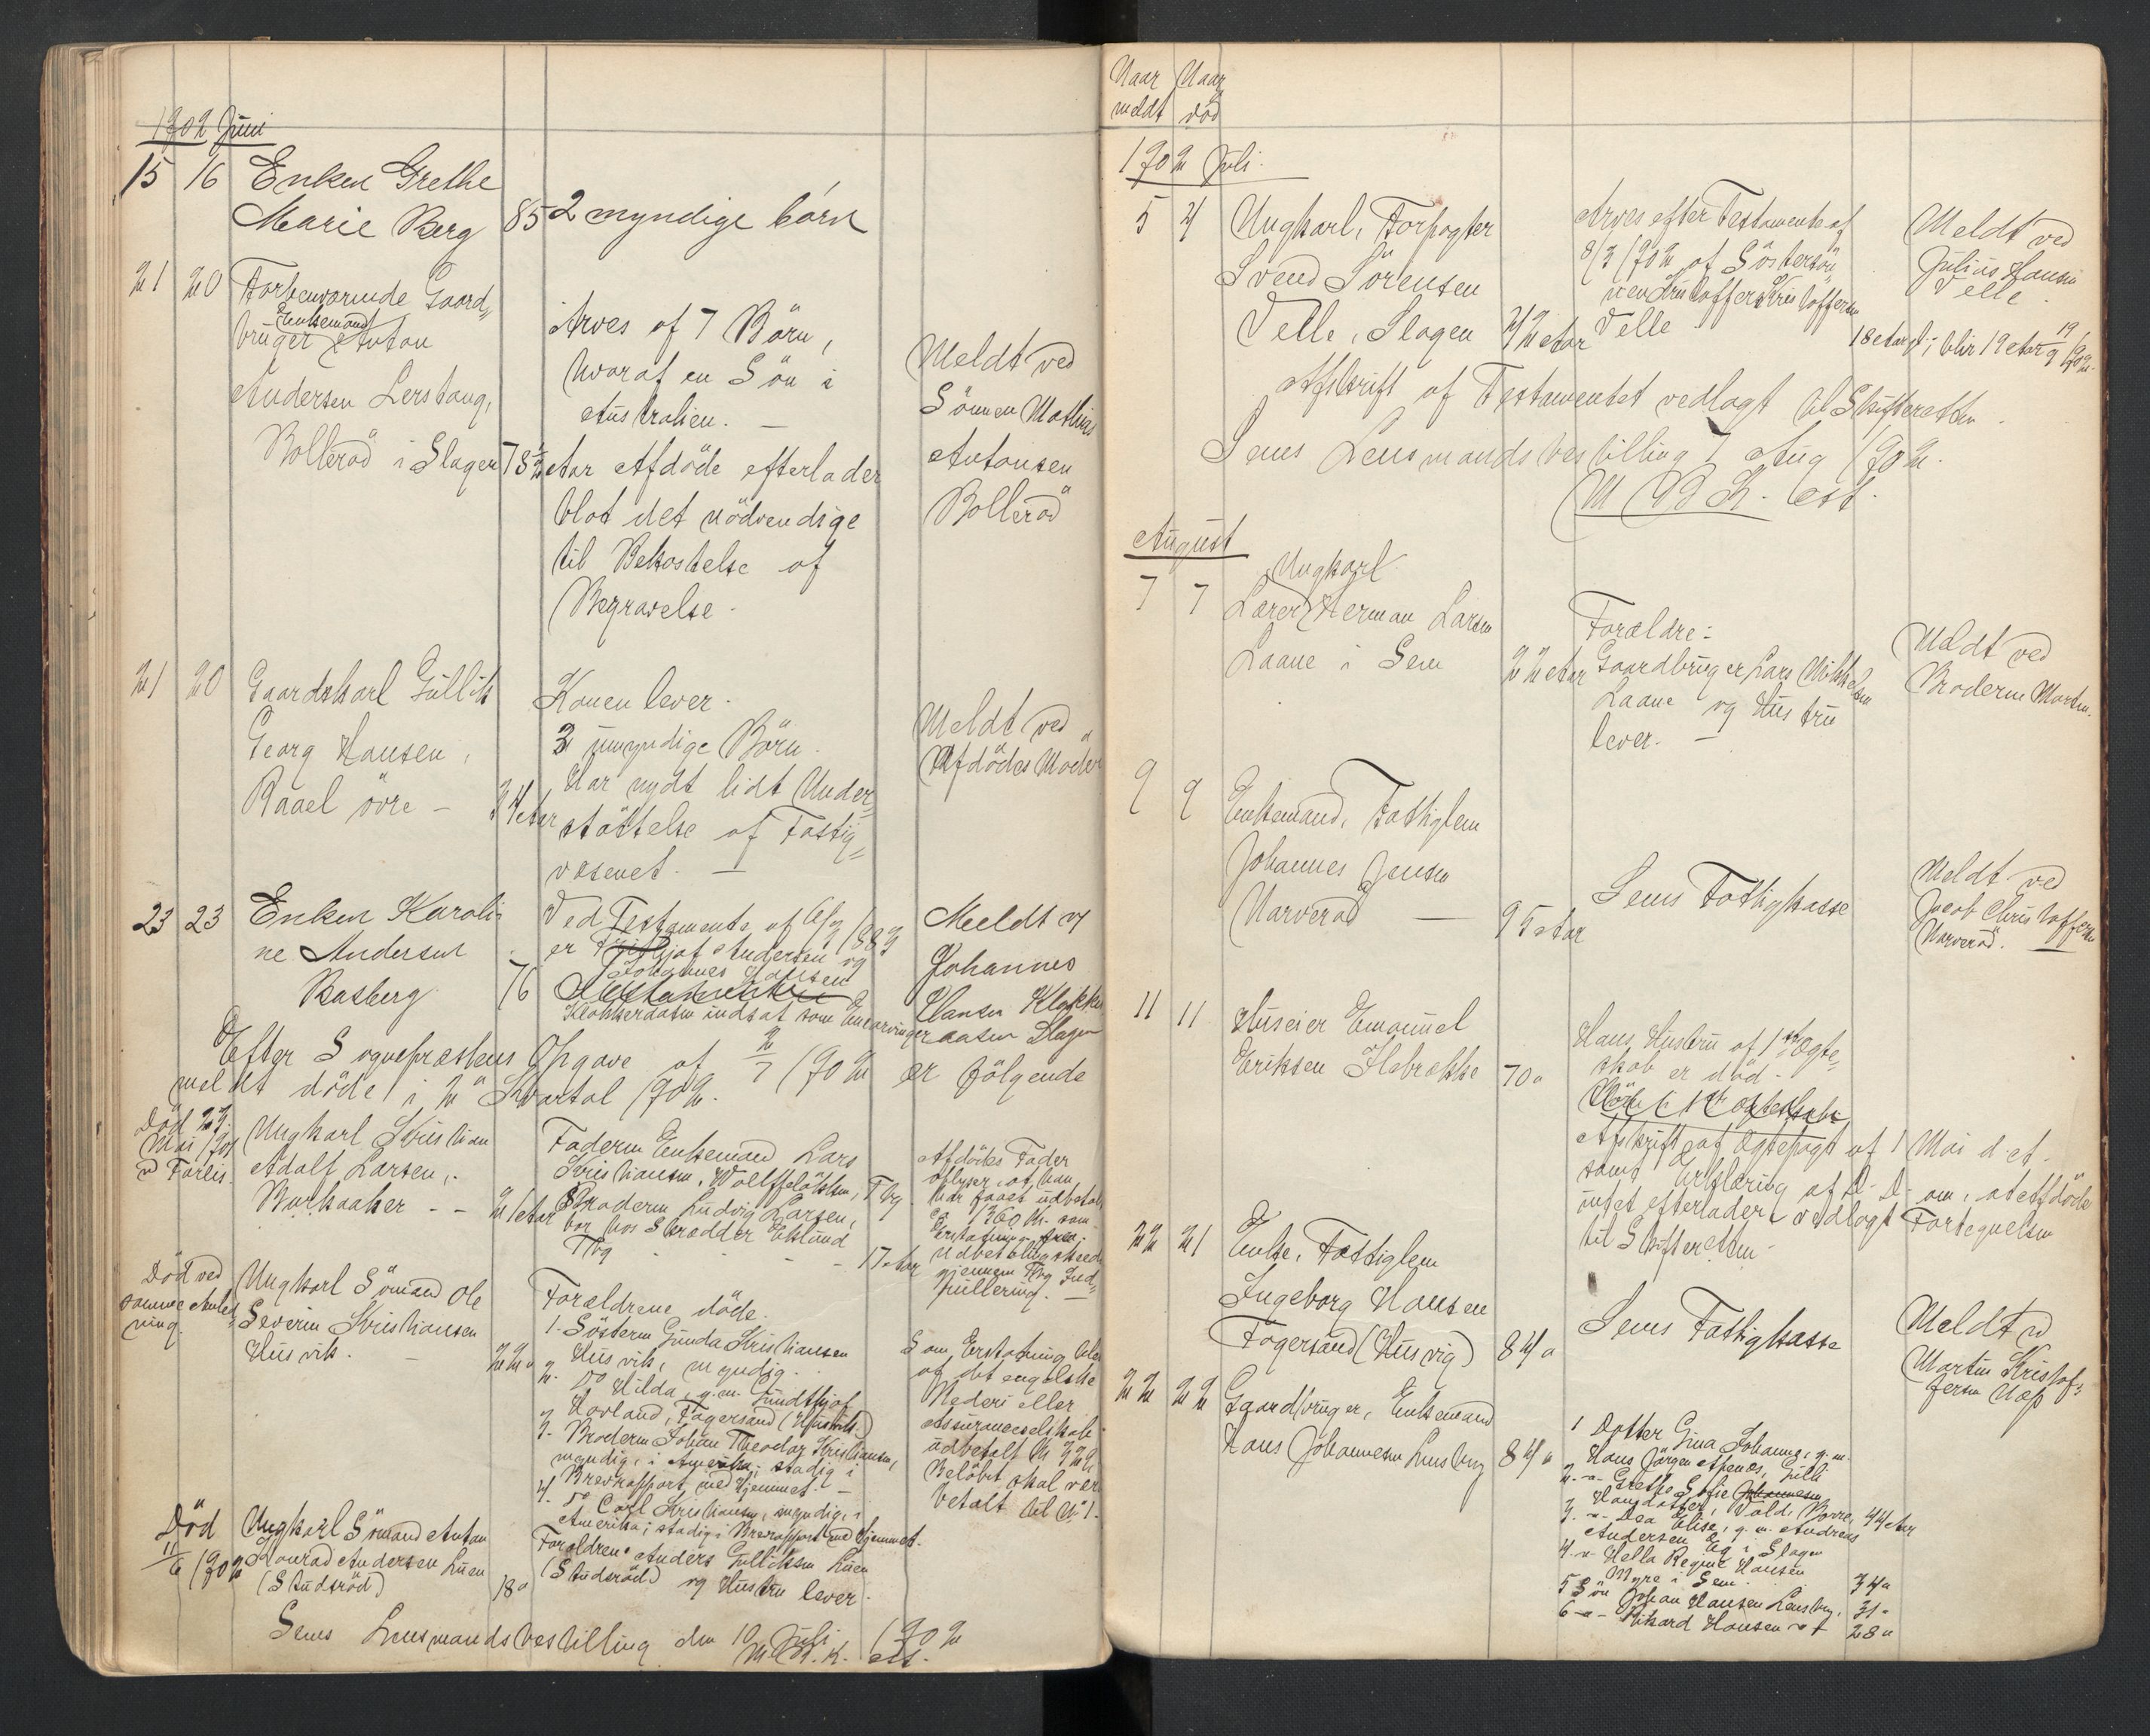 1902 Juni
15 16 Enken Grethe
Marie Berg 85 2 myndige børn
21 20 Forhenværende Gaard„
Enkemand
bruger Anton
Andersen Lerstang,
Bolleröd i Slagen 78½ Aar
Arves af 7 Börn,
hvoraf en Sön i
Australien. —
Afdöde efterlader
blot det nödvendige
til Bekostelse af
Begravelse.
Meldt ved
Sönnen Mathias
Antonsen
Bolleröd
21 20 Gaardskarl Gullik
Georg Hansen,
Raael övre — 34 Aar
Konen lever.
3 umyndige Börn.
Har nydt lidt Under„
stöttelse af Fattig„
væsenet. —
Meldt ved
Afdödes Moder
23 23 Enken Karoli
ne Andersen
Basberg 76
Ved Testamente af
er Andersen og
Johannes Hansen
indsat som Enearvinger
Meldt v
Johannes
Hansen
Slagen
Efter Sognepræstens Opgave af 2/7 1902 er fölgende
meldt döde i 2' Kvartal 1902.
Död 22
Mai 1901
v Forlis.
Ungkarl Kristian
Adolf Larsen,
Burkaaker - - 21 Aar
Faderen Enkemand Lars
Kristiansen, Tbg
Broderen Ludvig Larsen,
bor hos Skrædder Eklund
Tbg - - 17 Aar
Afdödes Fader
oplyser, at han
har faaet udbetalt
ca 1360 Kr. som
Erstatning
Udbetaling skeede
gjennem Tbg Ind„
rullering. —
Död ved
samme Anled„
ning.
Ungkarl Sömand Ole
Severin Kristiansen
Husvik. — 22 "
Forældrene döde.
1. Södteren Gunda Kristiansen
Husvik, myndig.
2. Do Hilda, g.m. Gundthjof
Havland, Fagersand (Husvik)
3. Broderen Johan Theodor Kristiansen,
myndig, i Amerika; stadig i
Brevrapport med Hjemmet. —
4. Do Carl Kristiansen, myndig, i
Amerika; stadig i Brevrapport med Hjemmet.
Som Erstatning blev
af det engelske
Rederi eller
Assuranceselskab
udbetalt Kr
Belöbet skal være
betalt til No 1.
Död
11/6 1902
Ungkarl Sömand Anton
Konrad Andersen Luen
(Studsröd) 18 "
Forældrene Anders Gulliksen Luen
(Studsröd) og Hustru lever.
Sems Lensmandsbestilling den 10 Juli 1902
M.B.K. ass.
Naar Naar
meldt död
1902 Juli.
5 4 Ungkarl, Forpagter
Svend Sörensen
Velle, Slagen 42 Aar
Arves efter Testamente af
8/3 1902 af Söstersön„
nen Kristoffer Kristoffersen
Velle 18 Aar gl; blir 19 Aar 19/9 1902.
Meldt ved
Julius Hansen
Velle.
Afskrift af Testamentet vedlagt til Skifteretten.
Sems Lensmandsbestilling 7 Aug 1902.
M B K. ast.
August
Ungkarl
7 7 Lærer Herman Larsen
Laane i Sem 22 Aar
Forældre:
Gaardbruger Lars Mikkelsen
Laane og Hustru
lever. —
Meldt ved
Broderen Martin.
9 9 Enkemand, Fattiglem
Johannes Jensen
Narveröd — 95 Aar
Sems Fattigkasse
Meldt ved
Jacob Christoffersen
Narveröd. —
11 11 Huseier Emanuel
Eriksen Ilebrække 70 "
Hans Hustru af 1ste Ægte„
skab er död.
Afskrift af Ægtepagt af 1 Mai d.A.
samt Erklæring af D. D. om, at Afdöde
intet efterlader, vedlagt Fortegnelsen
til Skifteretten.
22 21 Enke, Fattiglem
Ingeborg Hansen
Fagersand (Husvig) 84 "
Sems Fattigkasse
Meldt v
Martin Kristof„
fersen Næs
22 22 Gaardbruger, Enkemand
Hans Johannesen Lensberg 84 "
1 Datter Gina Johanne, g.m.
Hans Jörgen Apenæs,
2. -"- Grethe Sofie Johannesen
Hansdatter, Borre, 44 Aar
3. -"- Dea Elise, g.m. Andreas
Andersen Eg i Slagen
4. -"- Hella Regine Hansen
Myre i Sem. 34 "
5 Sön Johan Hansen Lensberg, 31 "
6 -"- Rikard Hansen 28 "